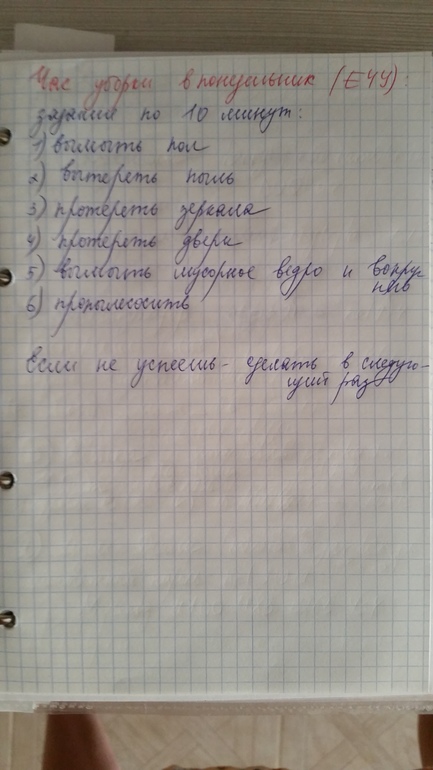 Час уборки в понедельник (ЕЧУ):
задание по 10 минут:
1) вымыть пол
2) вытереть пыль
3) протереть зеркала
4) протереть двери
5) вымыть мусорное ведро и вокруг
6) пропылесосить
Если не успеешь - сделать в следую-
щий раз